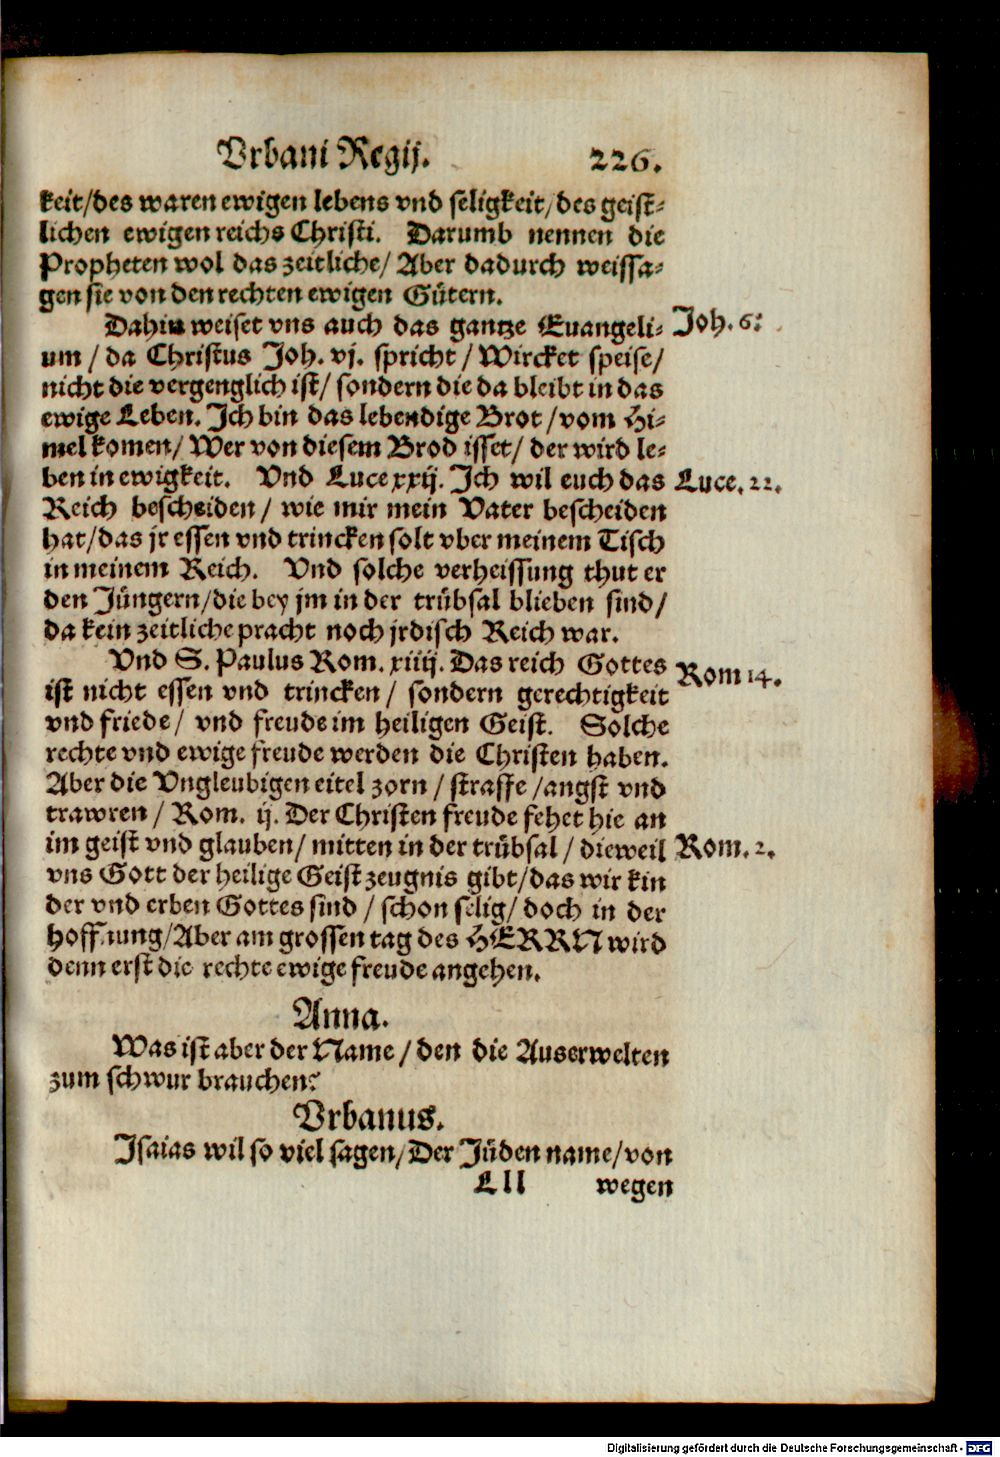 Vrbani Regij. 226.
keit/des waren ewigen lebens vnd seligkeit/des geist-
lichen ewigen reichs Christi. Darumb nennen die
Propheten wol das zeitliche/ Aber dadurch weissa-
gen sie von den rechten ewigen Gütern.
Dahin weiset vns auch das gantze Euangeli- Joh. 6.
um / da Christus Joh. vj. spricht / Wircket speise/
nicht die vergenglich ist/ sondern die da bleibt in das
ewige Leben. Ich bin das lebendige Brot /vom Hi-
mel komen/ Wer von diesem Brod isset/ der wird le-
ben in ewigkeit. Vnd Luce xxij. Ich wil euch das Luce. 22.
Reich bescheiden / wie mir mein Vater bescheiden
hat/das jr essen vnd trincken solt vber meinem Tisch
in meinem Reich. Vnd solche verheissung thut er
den Jüngern/die bey jm in der trübsal blieben sind/
da kein zeitliche pracht noch jrdisch Reich war.
Vnd S. Paulus Rom. xiiij. Das reich Gottes Rom 14.
ist nicht essen vnd trincken / sondern gerechtigkeit
vnd friede/ vnd freude im heiligen Geist. Solche
rechte vnd ewige freude werden die Christen haben.
Aber die Vngleubigen eitel zorn / straffe /angst vnd
trawren / Rom. ij. Der Christen freude fehet hie an
im geist vnd glauben/ mitten in der trübsal / dieweil Rom. 2.
vns Gott der heilige Geist zeugnis gibt/das wir kin
der vnd erben Gottes sind / schon selig/ doch in der
hoffnung/Aber am grossen tag des HERRN wird
denn erst die rechte ewige freude angehen.
Anna.
Was ist aber der Name / den die Auserwelten
zum schwur brauchen?
Vrbanus.
Isaias wil so viel sagen/ Der Jüden name/von
Lll wegen
Digitalisierung gefördert durch die Deutsche Forschungsgemeinschaft - DFG